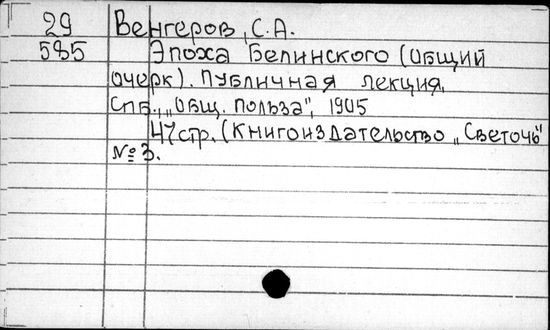 29 Венгеров, С.А.
585 Эпоха Белинского (общий
очерк). Публичная лекция.
Спб., „Общ. польза", 1905
47 стр. (Книгоиздательство „Светочь"
№ 3.